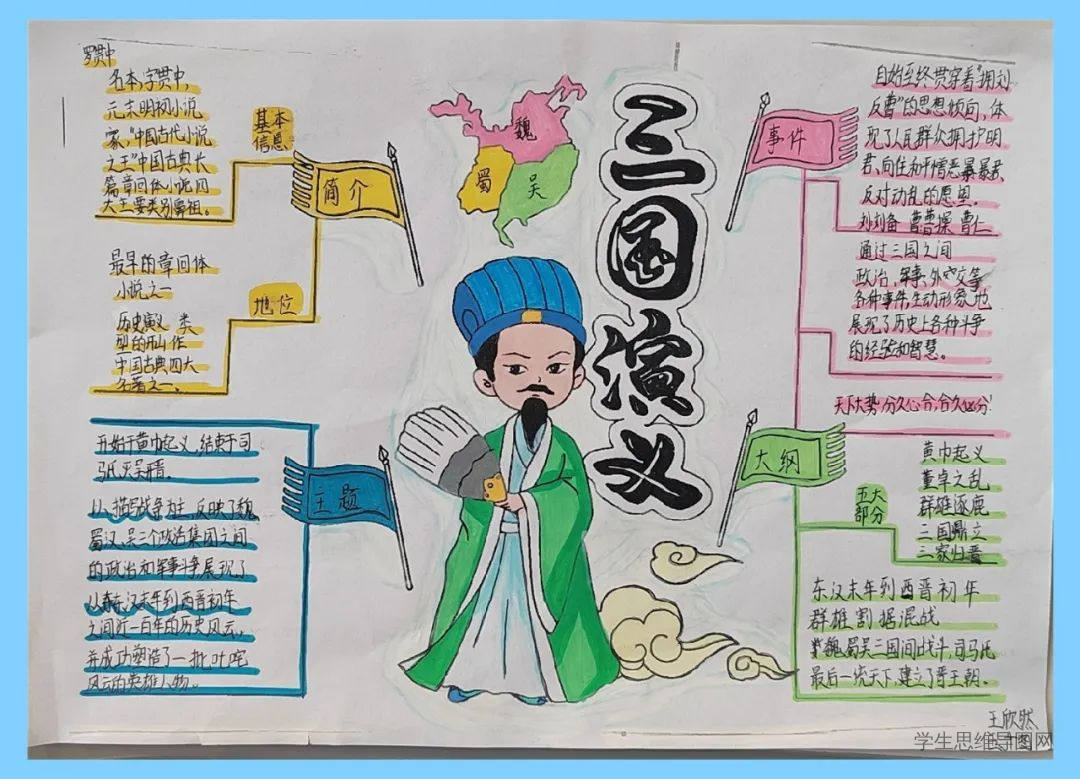 三国演义
魏
蜀
吴
罗贯中
名本,字贯中,
元末明初小说
家,"中国古代小说
之王"中国古典长
篇章回体小说四
大主要类别鼻祖。
基本
信息
简介
最早的章回体
小说之一
地位
历史演义 类
型的开山作
中国古典四大
名著之一。
开始于黄巾起义,结束于司
马氏灭吴
主题
以描写战争为主,反映了魏
蜀汉,吴三个政治集团之间
的政治和军事斗争,展现了
从东汉末年到西晋初年
之间近一百年的历史风云,
并成功塑造了一批叱咤
风云的英雄人物。
事件
自始至终贯穿着"拥刘
反曹"的思想倾向,体
现了人民群众拥护明
君、向往和平憎恶暴暴君,
反对动乱的愿望。
刘备 曹操 曹仁
通过三国之间
政治,军事,外交等
各种事件,生动形象地
展现了历史上各种斗争
的经验和智慧。
天下大势,分久必合,合久必分!
大纲
五大
部分
黄巾起义
董卓之乱
群雄逐鹿
三国鼎立
三家归晋
东汉末年到西晋初年
群雄割据混战
魏,蜀吴三国间战斗,司马氏
最后一统天下,建立了晋王朝。
王欣然
学生思维导图网